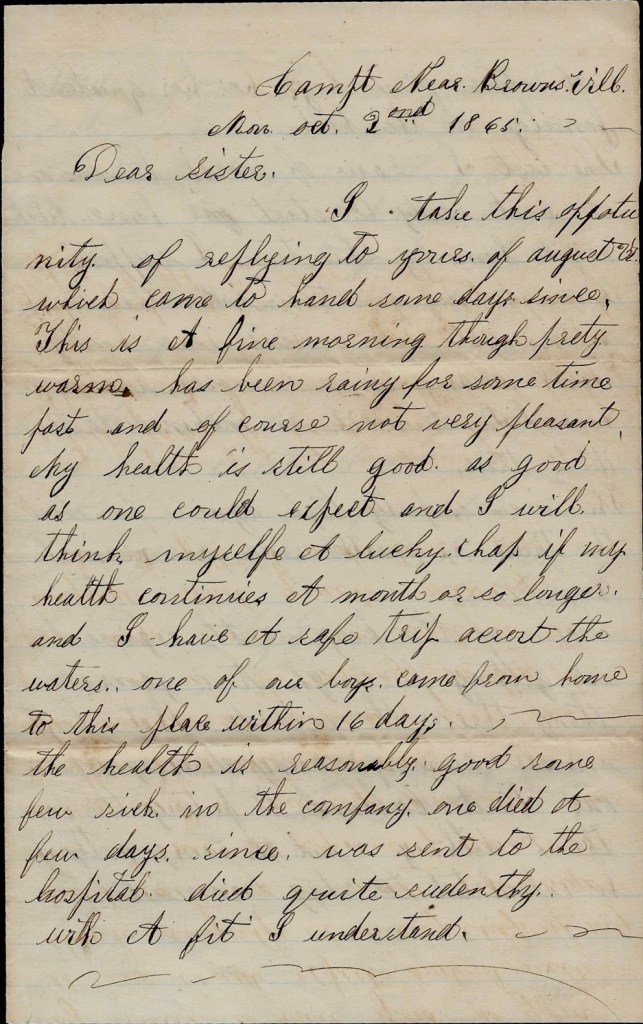 Camp Near Browns,Vill.
Mon. oct. 2nd 1865.
Dear sister.
I take this oppotu
nity. of replying to yours. of august
which came to hand some days since.
This is A fine morning though prety
warm. has been rainy for some time
past and of course not very pleasant.
My health is still good. as good
as one could expect and I will.
think myselfe A lucky. chap if my
health continues A month or so longer.
and I have A safe trip acrost the
waters. one of our boys. came from home
to this place within 16 days.
the health is reasonably. good some
few sick in the company. one died A
few days. since. was sent to the
hospital. died quite sudently.
with A fit I understand.